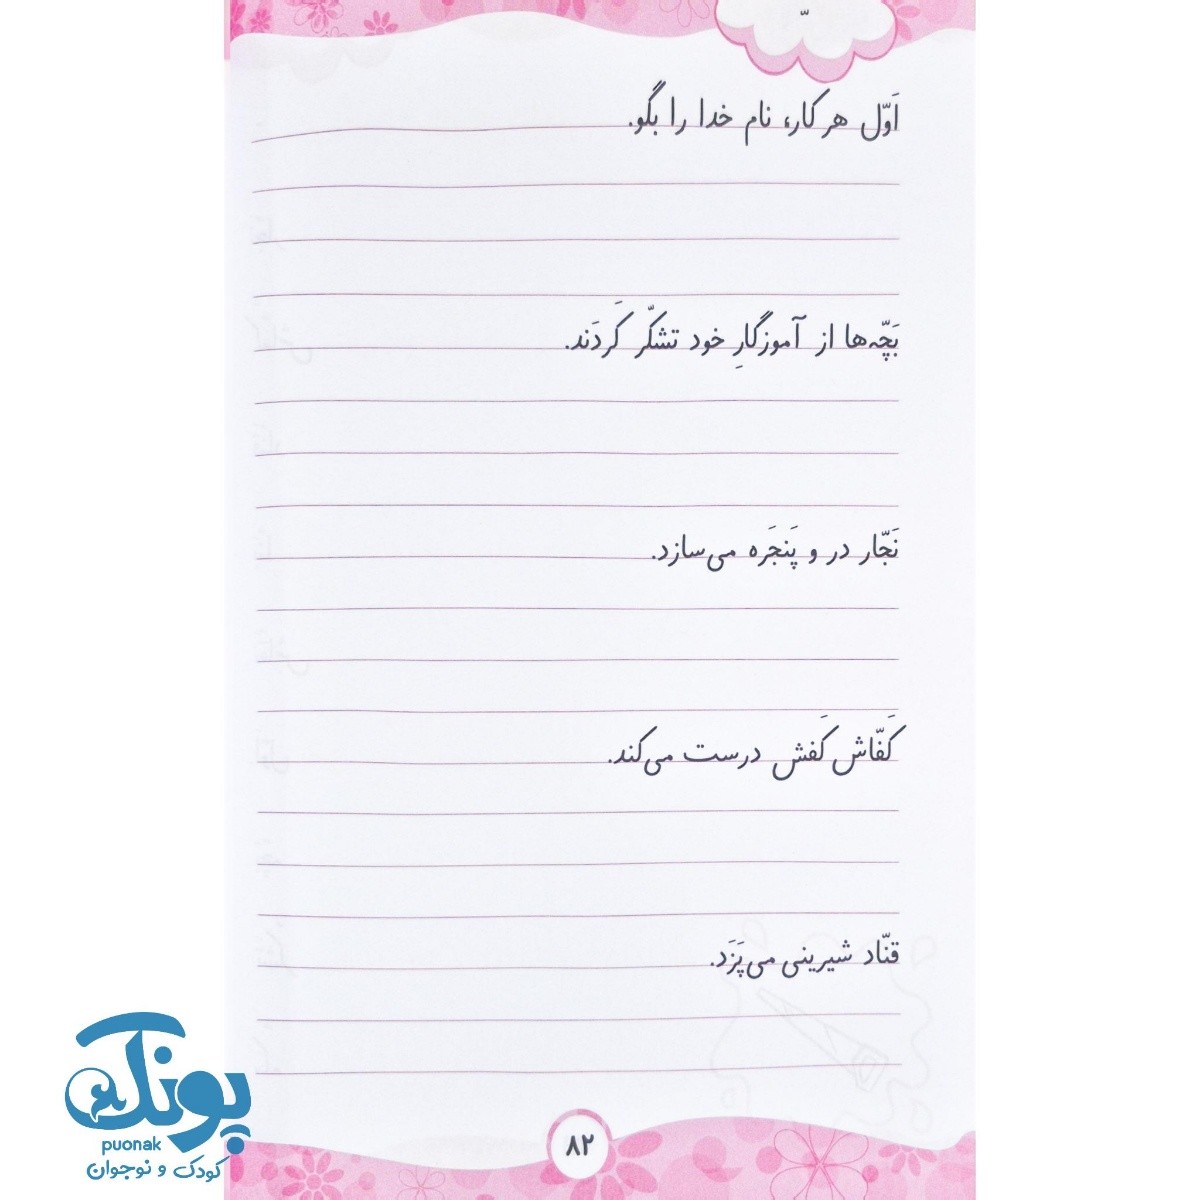 ّ
اَوّل هر کار، نام خدا را بگو.
بَچّه‌ها از آموزگارِ خود تشکّر کَردَند.
نَجّار در و پَنجَره می‌سازد.
کَفّاش کَفش درست می‌کند.
قنّاد شیرینی می‌پَزَد.
۸۲
پونک
puonak
کودک و نوجوان